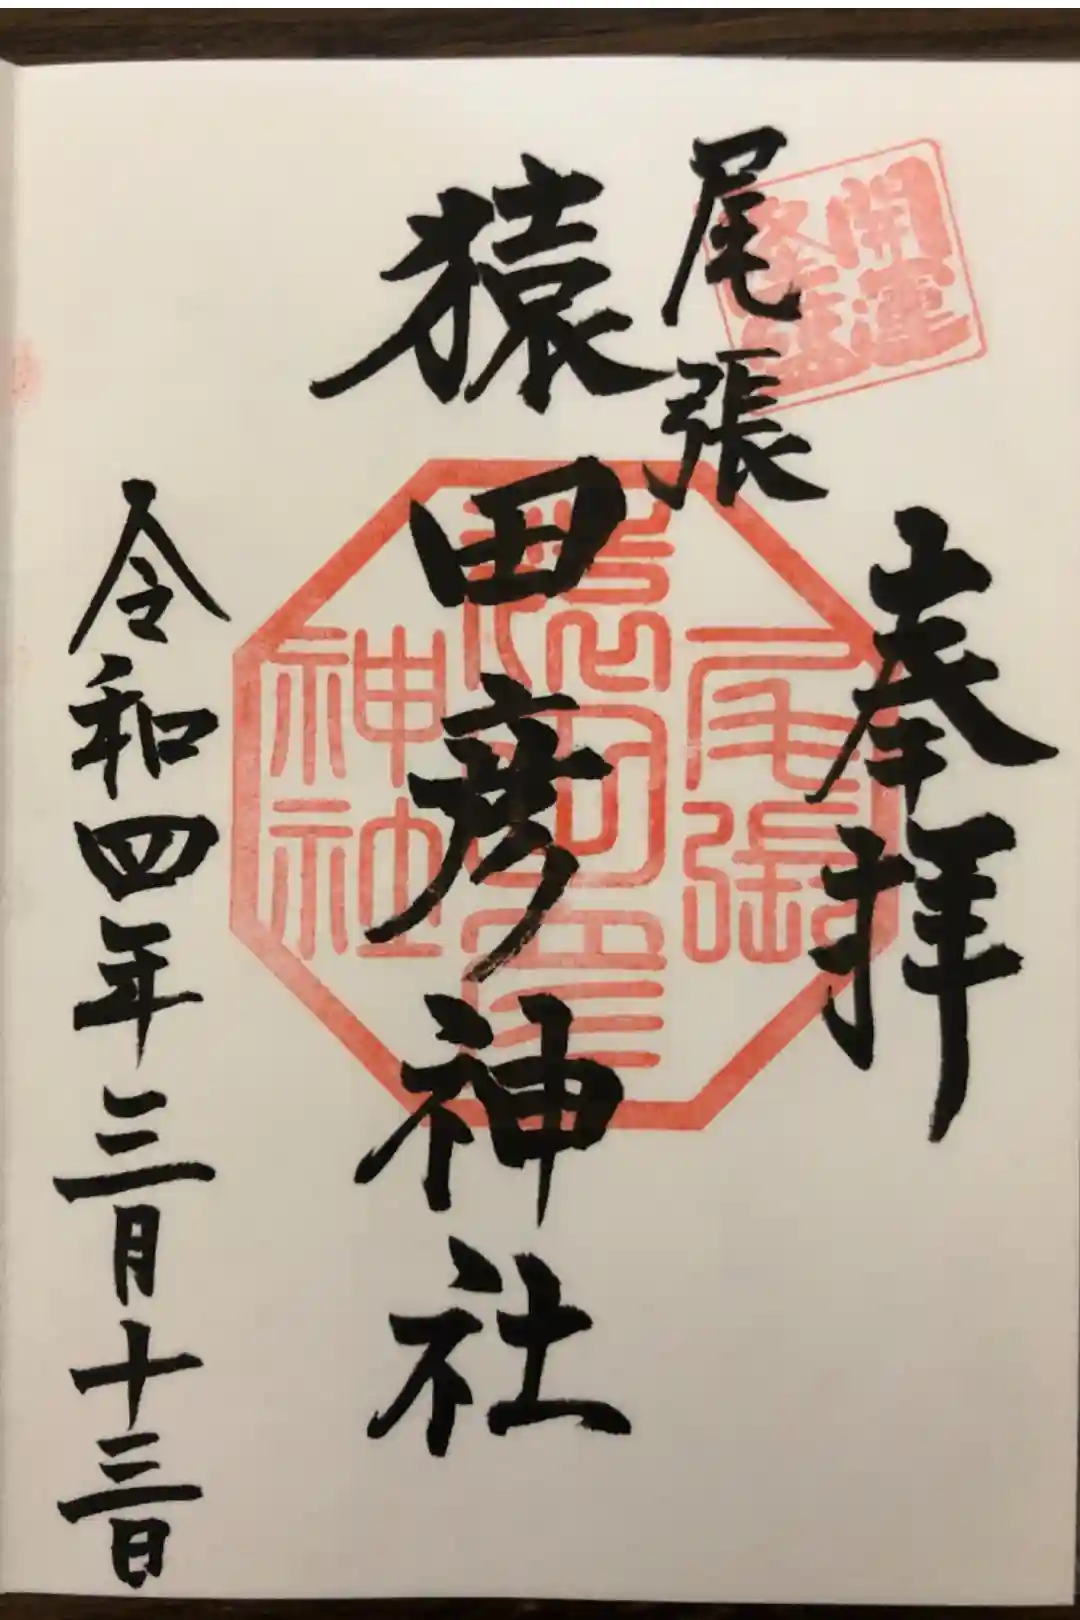 開運
隆盛
奉拝
尾張
猿田彦神社
尾張
猿田彦
神社
令和四年三月十三日